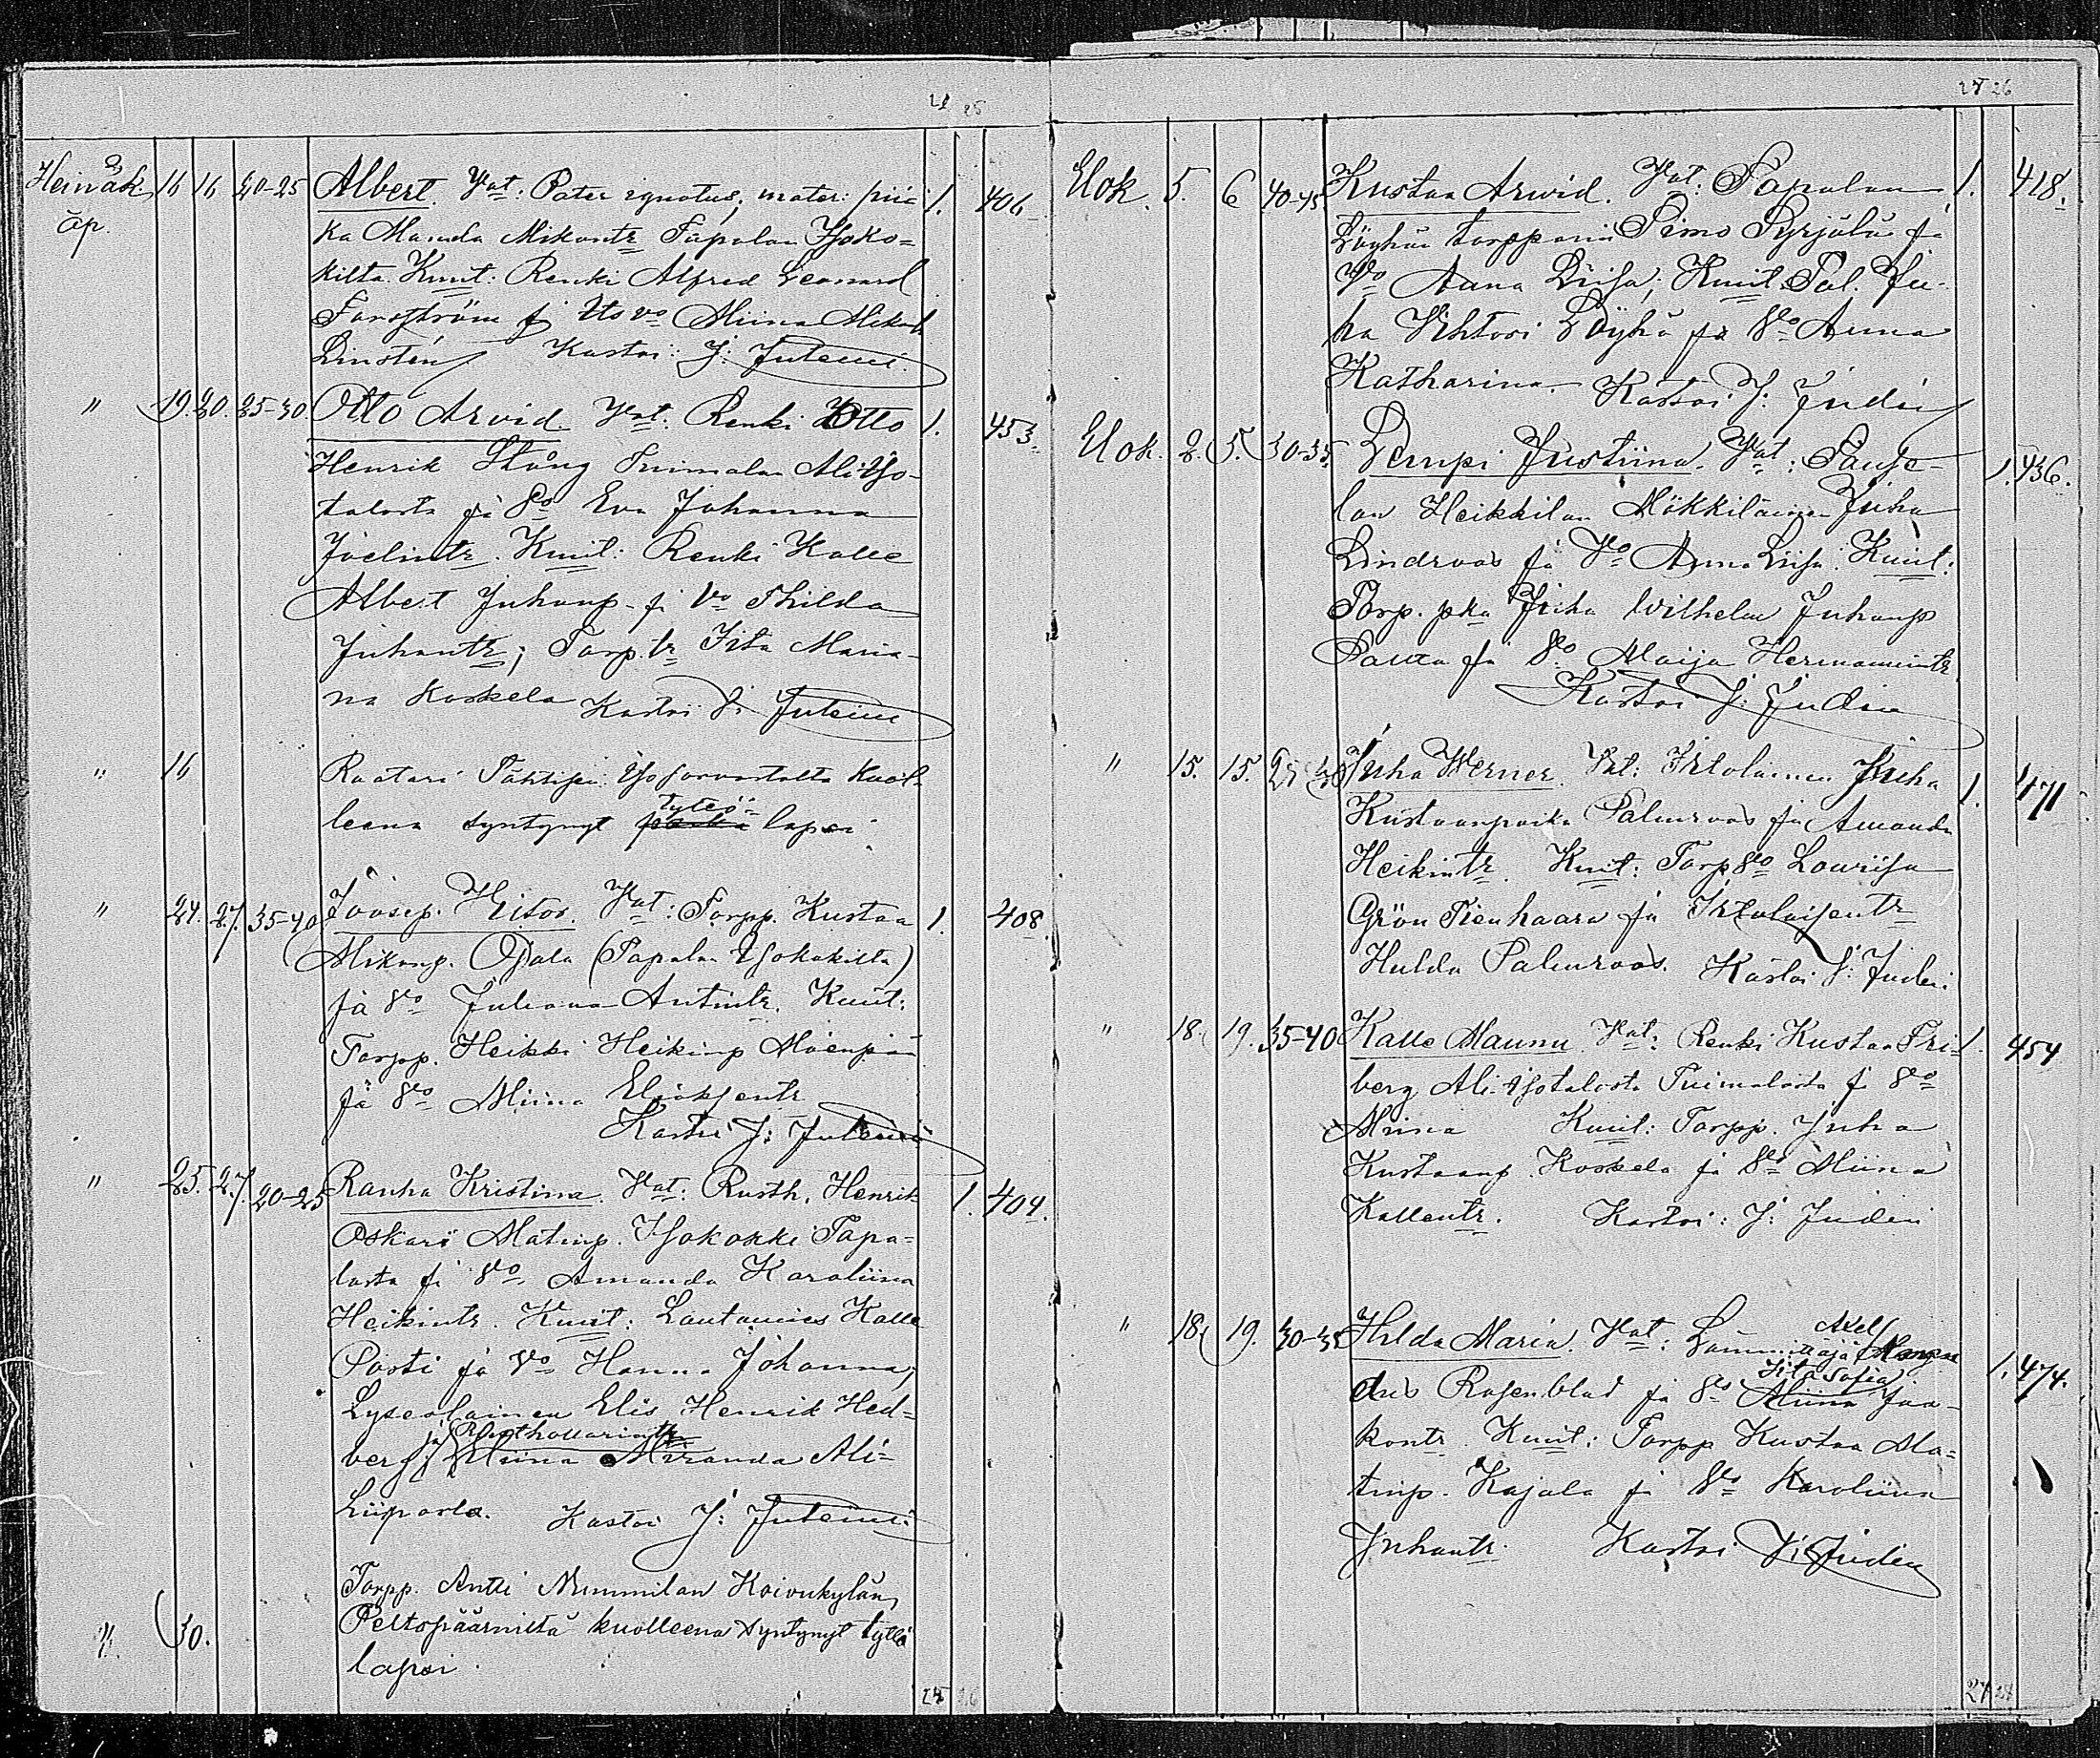 24 25
Heinäk. 16 16 20-25 Albert. Vat: Pater ignotus; mater: pii- 1. 406
äp. ka Manda Mikontr Papolan Isoko-
kilta. Kuut: Renki Alfred Leonard
Forsström ja Itsvo Miina Mikontr
Linstén Kastoi: J: Juteini.
" 19. 20. 25-30. Otto Arvid. Vat: Renki Otto 1. 453.
Henrik Stång Tuimalan Ali Iso-
talosta ja Vo Eva Johanna
Joelintr. Kuut: Renki Kalle
Albert Juhanp. ja Vo Thilda
Juhantr; Torp. tr Iita Maria-
na Koskela Kastoi J: Juteini
" 16 Raatari Tähtisen Isosorvastolta kuol-
leena syntynyt tyttö- lapsi
" 24. 27. 35-40 Joosep Vitor. Vat: Torpp. Kustaa 1. 408.
Mikonp. Ojala (Papolan Isokokilta)
ja Vo Juliana Antintr. Kuut:
Torpp. Heikki Heikinp Mäenpää
ja Vo Miina Eliaksentr
Kastoi J: Juteini
" 25. 27. 20-25 Rauha Kristina. Vat: Rusth. Henrik 1. 404.
Oskari Matinp. Isokokki Papo-
lasta ja Vo Amanda Karoliina
Heikintr. Kuut: Lautamies Kalle
Posti ja Vo Hanna Johanna,
Lyseolainen Elis Henrik Hed-
berg ja Rusthollarintr Miina Miranda Ali-
Liiporla. Kastoi J: Juteini.
Torpp. Antti Nummilan Koivukylän
" 30. Peltopäärniltä kuolleena syntynyt tyttö
lapsi.
25 26
25 26
Elok. 5. 6 40-45 Kustaa Arvid. Vat: Papolan 1. 418.
Löyhän torppari Simo Pyrjälä ja
Vo Anna Liisa; Kuut: Tal. Ju-
ha Vihtori Löyhä ja Vo Anna
Katharina. Kastoi J: Judin
Elok. 2. 5. 30-35. Lempi Justiina. Vat: Pause- 1. 436.
lan Heikkilan Mökkiläinen Juha
Lindroos ja Vo Anna Liisa: Kuut:
Torp. pka Juha Wilhelm Juhanp
Pauca ja Vo Maija Hermannintr
Kastoi J: Judin
" 15. 15. Juha Werner. Vat: Itlolainen Juha 1. 471
Kustaanpoika Palmroos ja Amanda
Heikintr. Kuut: Torp Vo Lowiisa
Grön Tienhaara ja Itlolaisentr
Hulda Palmroos. Kastoi J: Judin.
" 18. 19. 35-40 Kalle Maunu. Vat: Renki Kustaa Fri- 1. 454
berg Ali-Isotalosta Tuimalasta ja Vo
Miina Kuut: Torpp. Juha
Kustaanp Koskela ja Vo Miina
Kallentr. Kastoi: J: Judin
" 18. 19. 30-35 Hilda Maria. Vat: Axel 1. 474.
Rosenblad ja Vo Iita Sofia Jaa-
kontr. Kuut: Torpp Kustaa Ma-
tinp. Kajala ja Vo Karoliina
Juhantr. Kastoi J: Judin
27 28